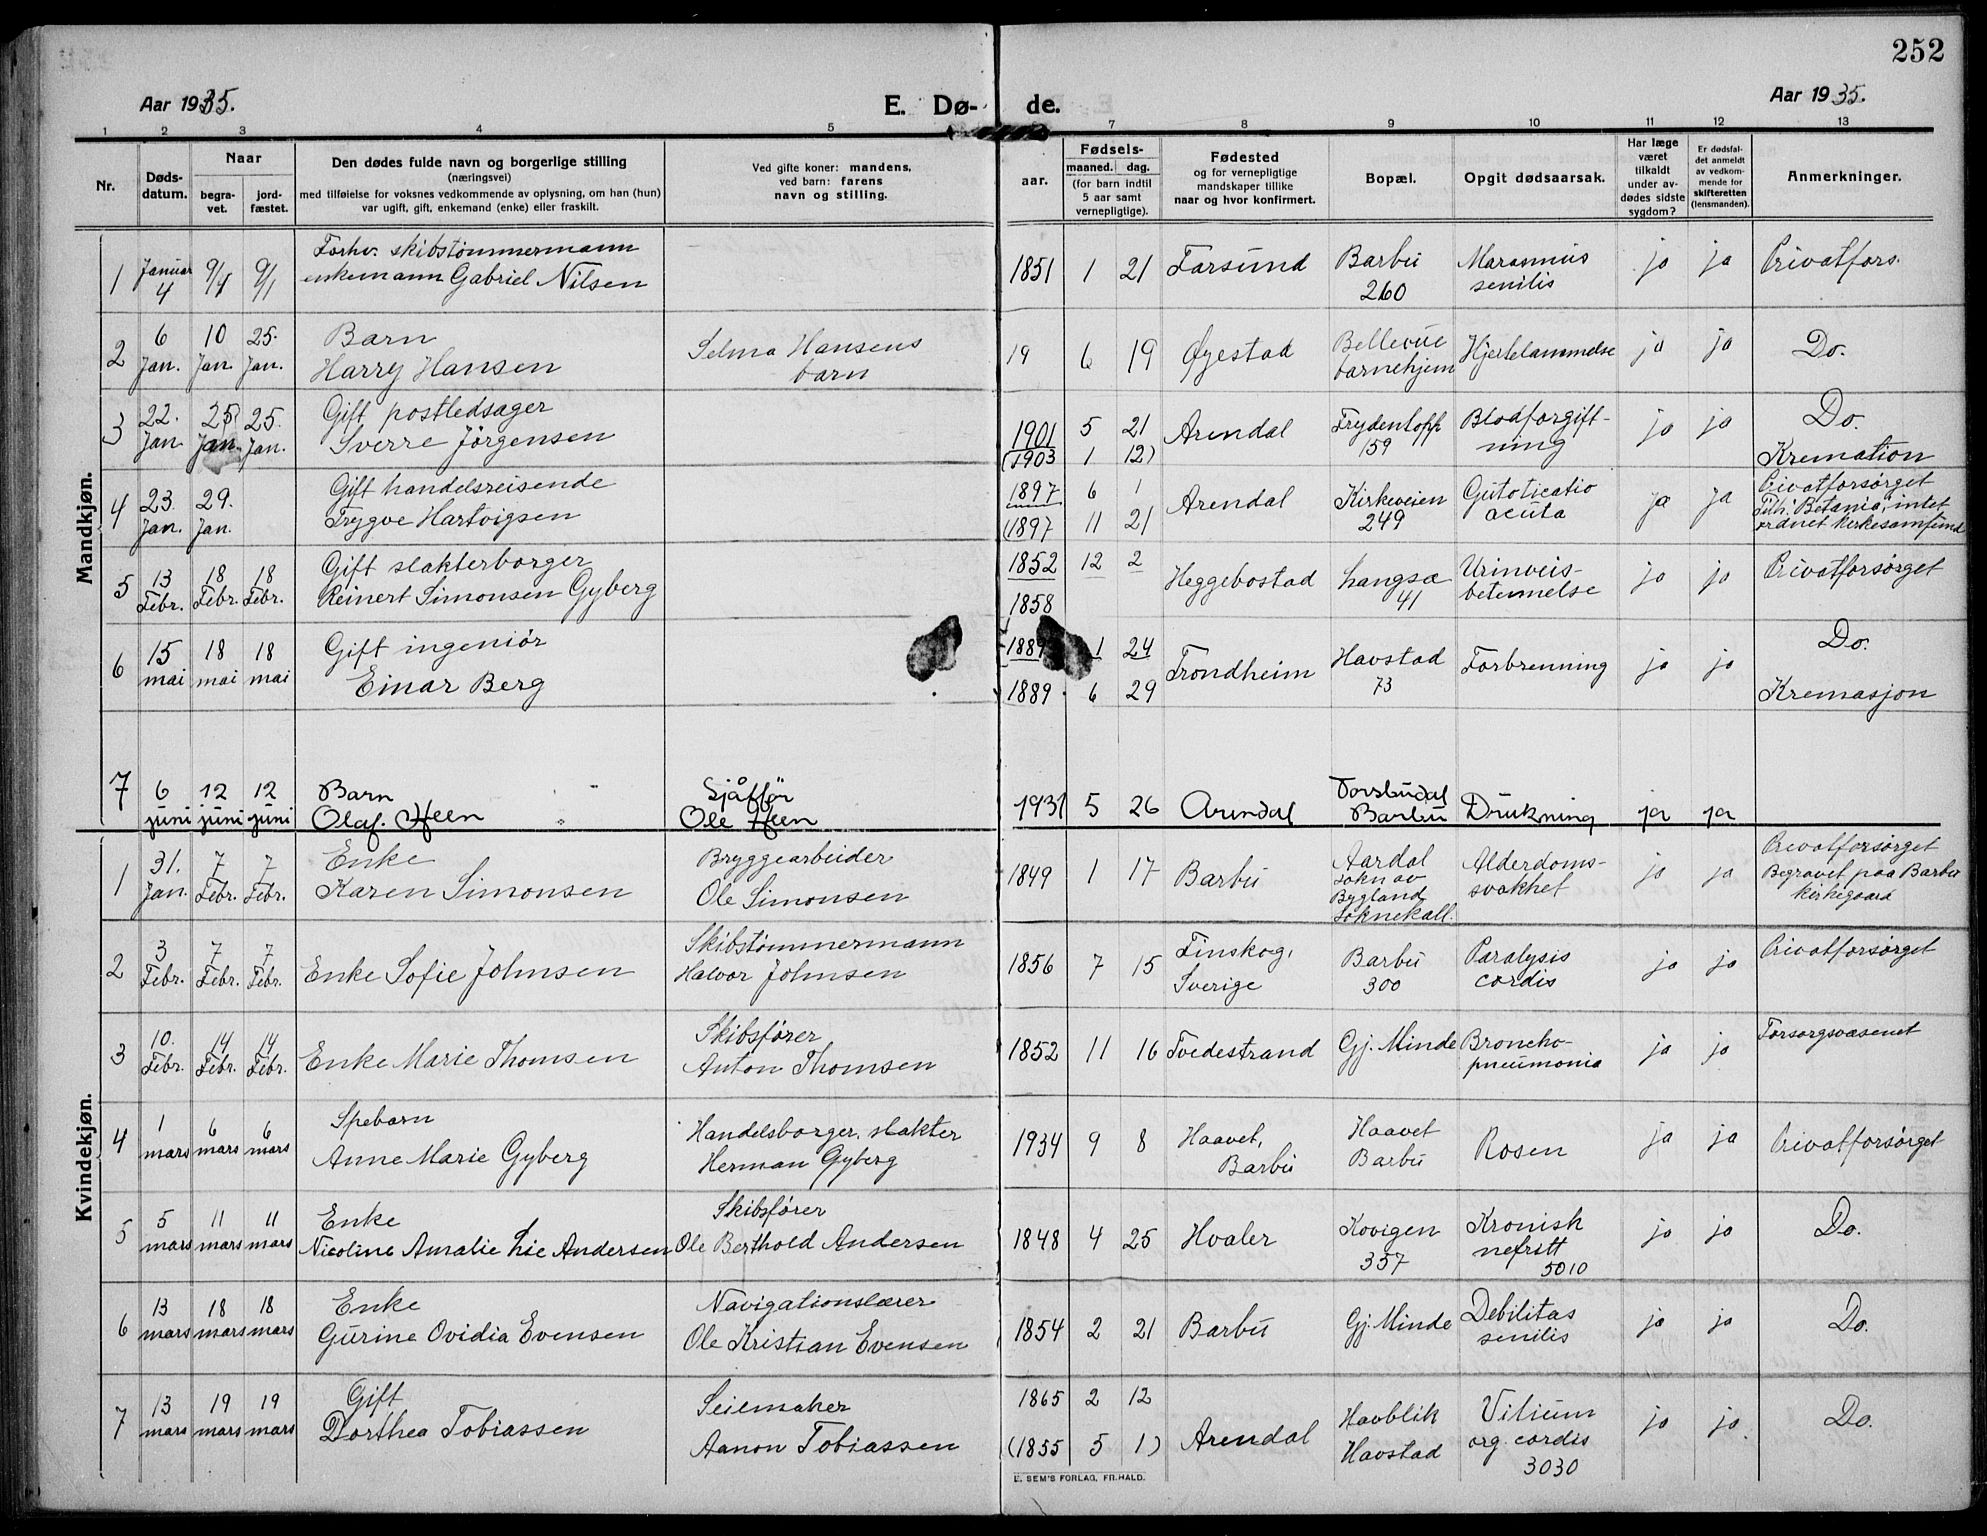 252
Aar 1935.
E. Dø-
de.
Aar 1935.
1 2 3 4 5 7 8 9 10 11 12 13
Nr.
Døds-
datum.
Naar
begra-
vet.
jord-
fæstet.
Den dødes fulde navn og borgerlige stilling
(næringsvei)
med tilføielse for voksnes vedkommende av oplysning, om han (hun)
var ugift, gift, enkemand (enke) eller fraskilt.
Ved gifte koner: mandens,
ved barn: farens
navn og stilling.
aar.
Fødsels-
maaned. dag.
(for barn indtil
5 aar samt
vernepligtige).
Fødested
og for vernepligtige
mandskaper tillike
naar og hvor konfirmert.
Bopæl.
Opgit dødsaarsak.
Har læge
været
tilkaldt
under av-
dødes sidste
sygdom?
Er dødsfal-
det anmeldt
av vedkom-
mende for
skifteretten
(lensmanden).
Anmerkninger.
Mandkjøn.
Forhv. skibstømmermann Barbu Marasmus
1 Januar 4 9/1 9/1 enkemann Gabriel Nilsen 1851 1 21 Farsund 260 senilis ja ja Privatfors.
6 10 25. Barn Selma Hansens Bellevue
2 Jan. Jan. Jan. Harry Hansen barn 19 6 19 Øyestad barnehjem Hjertelammelse ja ja Do.
22. 25 25. Gift postledsager 1901 5 21 Frydentopp Blodforgift- Do.
3 Jan. Jan. Jan. Sverre Jörgensen (1903 1 12) Arendal 159 ning ja ja Kremation
23. 29. Gift handelsreisende 1897 6 1 Kirkeveien Privatforsørget
4 Jan. Jan. Trygve Hartvigsen (1897 11 21 Arendal 249 acuta ja ja Tilh. Betania, intet
ordnet kirkesamfund
13 18 18 Gift slakterborger 1852 12 2 Langsæ Urinveis-
5 Febr. Febr. Febr. Reinert Simonsen Gyberg 1858 Heggebostad 41 betennelse ja ja Privatforsørget
15 18 18 Gift ingeniør 1889 1 24 Havstad Do.
6 mai mai mai Einar Berg 1889 6 29 Trondheim 73 Forbrenning ja ja Kremasjon
6 12 12 Barn Sjåffør Torsbudal
7 juni juni juni Olaf Heen Ole Heen 1931 5 26 Arendal Barbu Drukning ja ja
Kvindekjøn.
31. 7 7 Enke Bryggearbeider Aardal Alderdoms- Privatforsørget
1 Jan. Febr. Febr. Karen Simonsen Ole Simonsen 1849 1 17 Barbu sokn av svakhet ja ja Begravet paa Barbu
Bygland kirkegaard
soknekall.
3 7 7 Skibstømmermann Finskog, Barbu Paralysis
2 Febr. Febr. Febr. Enke Sofie Johnsen Halvor Johnsen 1856 7 15 Sverige 300 cordis ja ja Privatforsørget
10. 14 14 Skibsfører Broncho-
3 Febr. Febr. Febr. Enke Marie Thomsen Anton Thomsen 1852 11 16 Tvedestrand Gj. Minde pneumonia ja ja Forsorgsvæsenet
1 6 6 Spebarn Handelsborger, slakter Haavet, Haavet
4 mars mars mars Anne Marie Gyberg Herman Gyberg 1934 9 8 Barbu Barbu Rosen ja ja Privatforsørget
5 11 11 Enke Skibsfører Kovigen Kronisk
5 mars mars mars Nicoline Amalie Lie Andersen Ole Berthold Andersen 1848 4 25 Hvaler 357 nefritt ja ja Do.
5010
13 18 18 Enke Navigationslærer Debilitas
6 mars mars mars Gurine Ovidia Evensen Ole Kristian Evensen 1854 2 21 Barbu Gj. Minde senilis ja ja Do.
13 19 19 Gift Seilmaker 1865 2 12 Havblik Vitium
7 mars mars mars Dorthea Tobiassen Aanon Tobiassen (1855 5 1) Arendal Havstad org. cordis ja ja. Do.
3030
E. SEM'S FORLAG, FR.HALD.